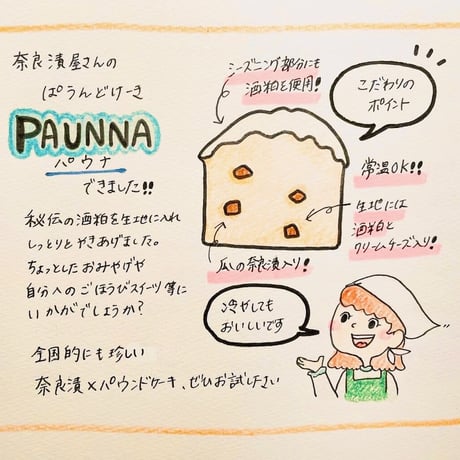 奈良漬屋さんの
ぱうんどけーき
PAUNNA
パウナ
できました!!
秘伝の酒粕を生地に入れ
しっとりとやきあげました。
ちょっとしたおみやげや
自分へのごほうびスイーツ等に
いかがでしょうか?
全国的にも珍しい
奈良漬×パウンドケーキ、ぜひお試し下さい
シーズニング部分にも
酒粕を使用!
こだわりの
ポイント
常温OK!!
生地には
酒粕と
クリームチーズ入り!
瓜の奈良漬入り!
冷やしても
おいしいです